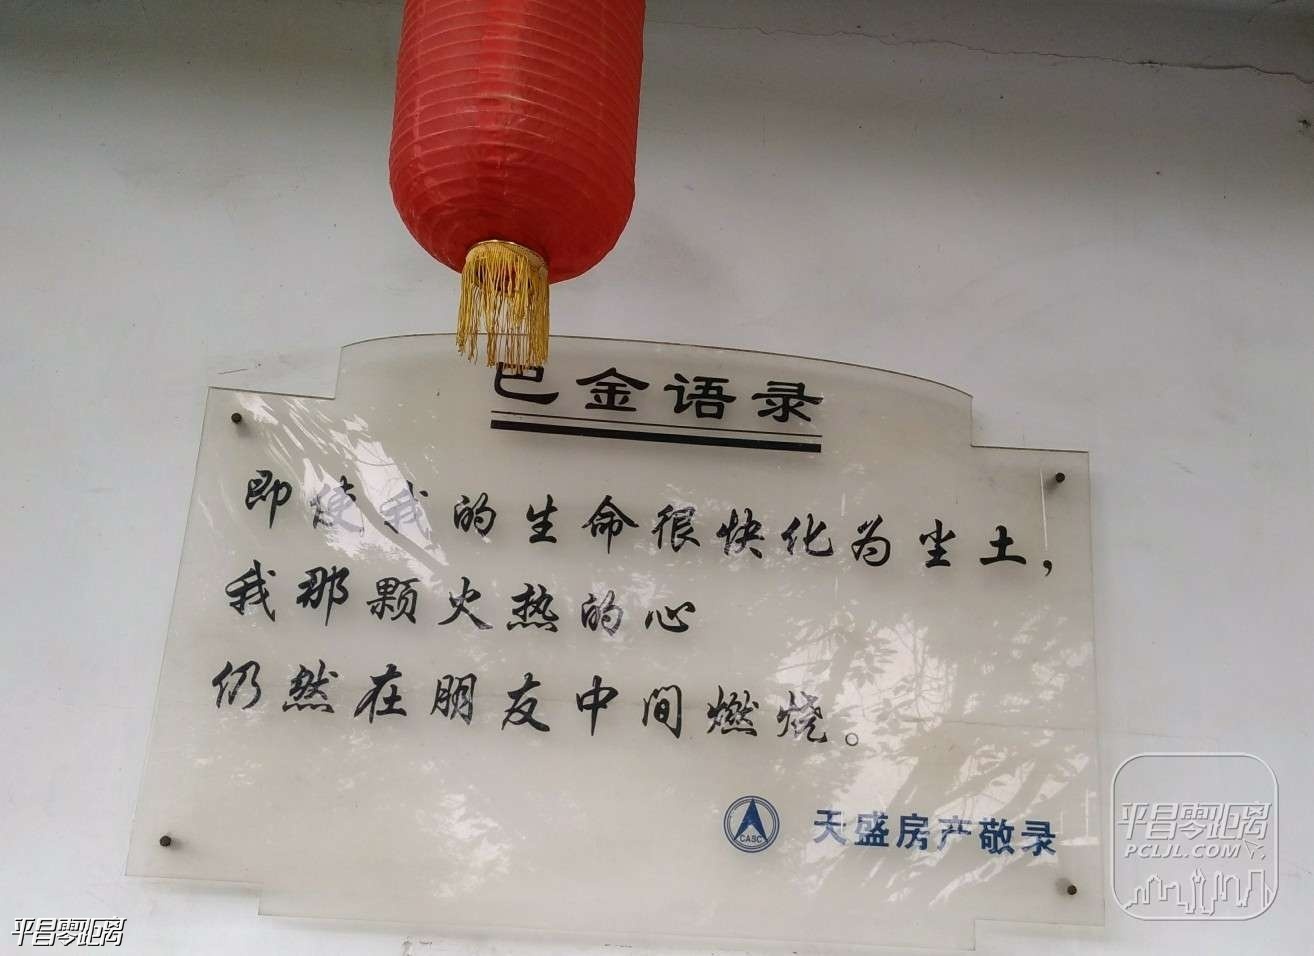 巴金语录
即使我的生命很快化为尘土，
我那颗火热的心
仍然在朋友中间燃烧。
CASC
天盛房产敬录
平昌零距离
PCLJL.COM
平昌零距离